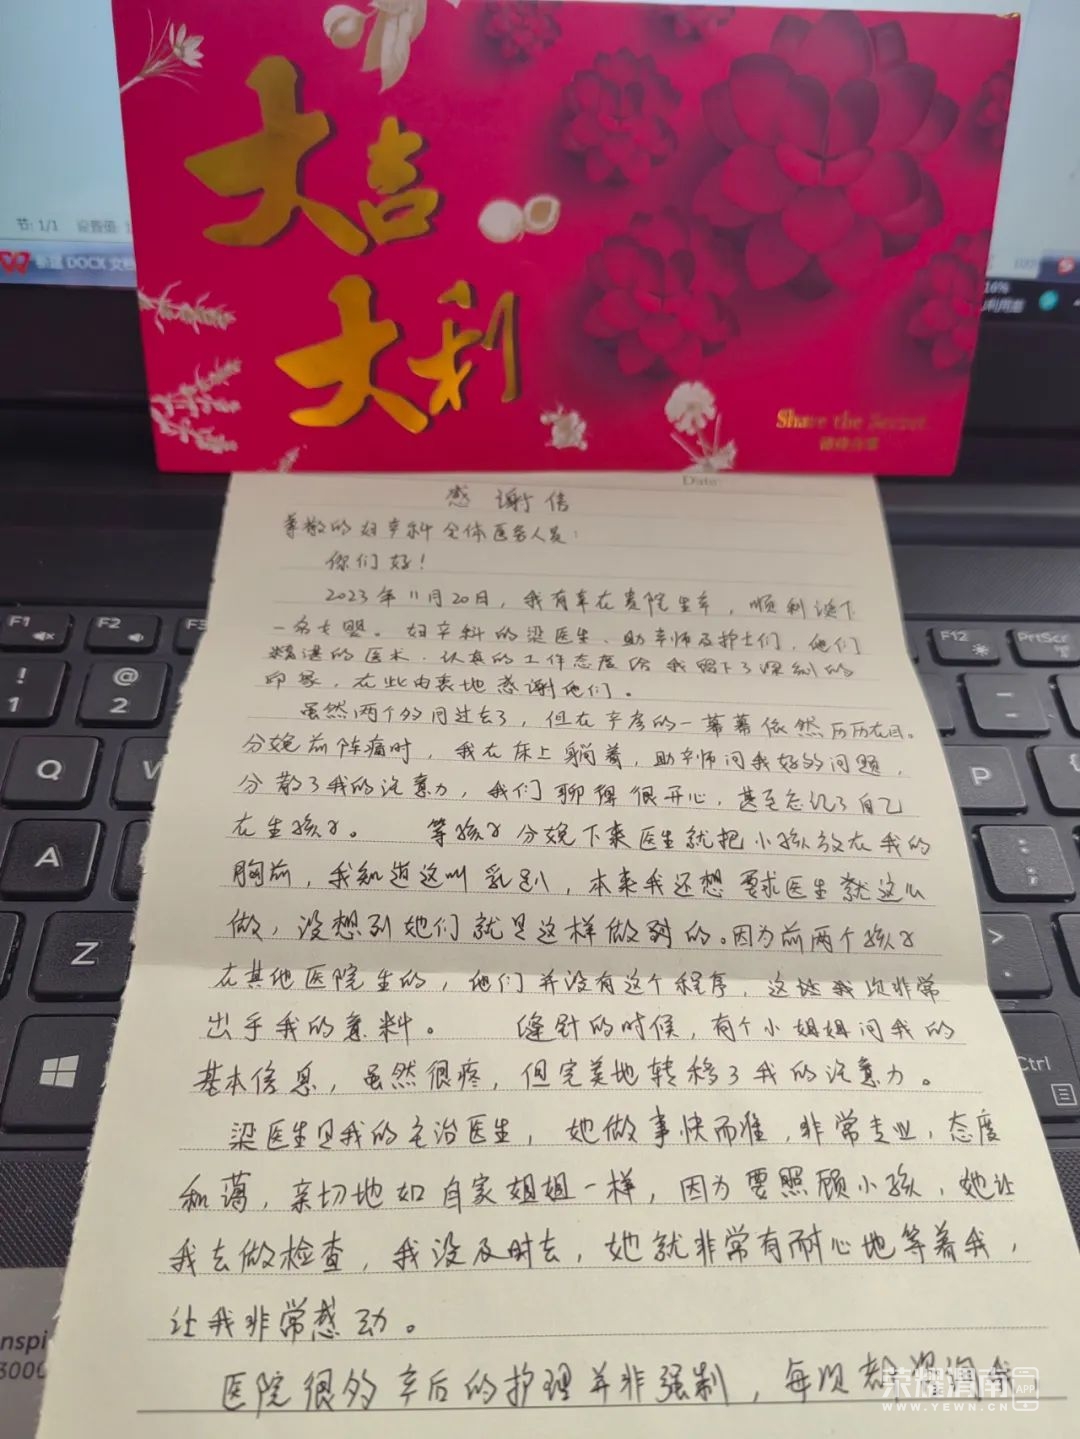 节: 1/1
DOCX 文档
16%
大吉
大利
Share the Secret
Date:
感谢信
尊敬的妇产科全体医务人员:
你们好!
2023年11月20日,我有幸在贵院生产,顺利诞下
一名女婴。妇产科的梁医生、助产师及护士们,他们
精湛的医术、认真的工作态度给我留下了深刻的
印象,在此由衷地感谢他们。
虽然两个多月过去了,但在产房的一幕幕依然历历在目。
分娩前阵痛时,我在床上躺着,助产师问我好多问题,
分散了我的注意力,我们聊得很开心,甚至忘记了自己
在生孩子。 等孩子分娩下来医生就把小孩放在我的
胸前,我知道这叫乳趴,本来我还想要求医生就这么
做,没想到她们就是这样做到的。因为前两个孩子
在其他医院生的,他们并没有这个程序,这让我觉非常
出乎我的意料。 缝针的时候,有个小姐姐问我的
基本信息,虽然很疼,但完美地转移了我的注意力。
梁医生是我的主治医生,她做事快而准,非常专业,态度
和蔼,亲切地如自家姐姐一样,因为要照顾小孩,她让
我去做检查,我没及时去,她就非常有耐心地等着我,
让我非常感动。
医院很多产后的护理并非强制,每次都
荣耀渭南
APP
WWW.YEWN.CN
F1
F2
F3
F12
PrtScr
!
1
@
2
Q
W
P
A
Z
>
.
Ctrl
nspi
3000